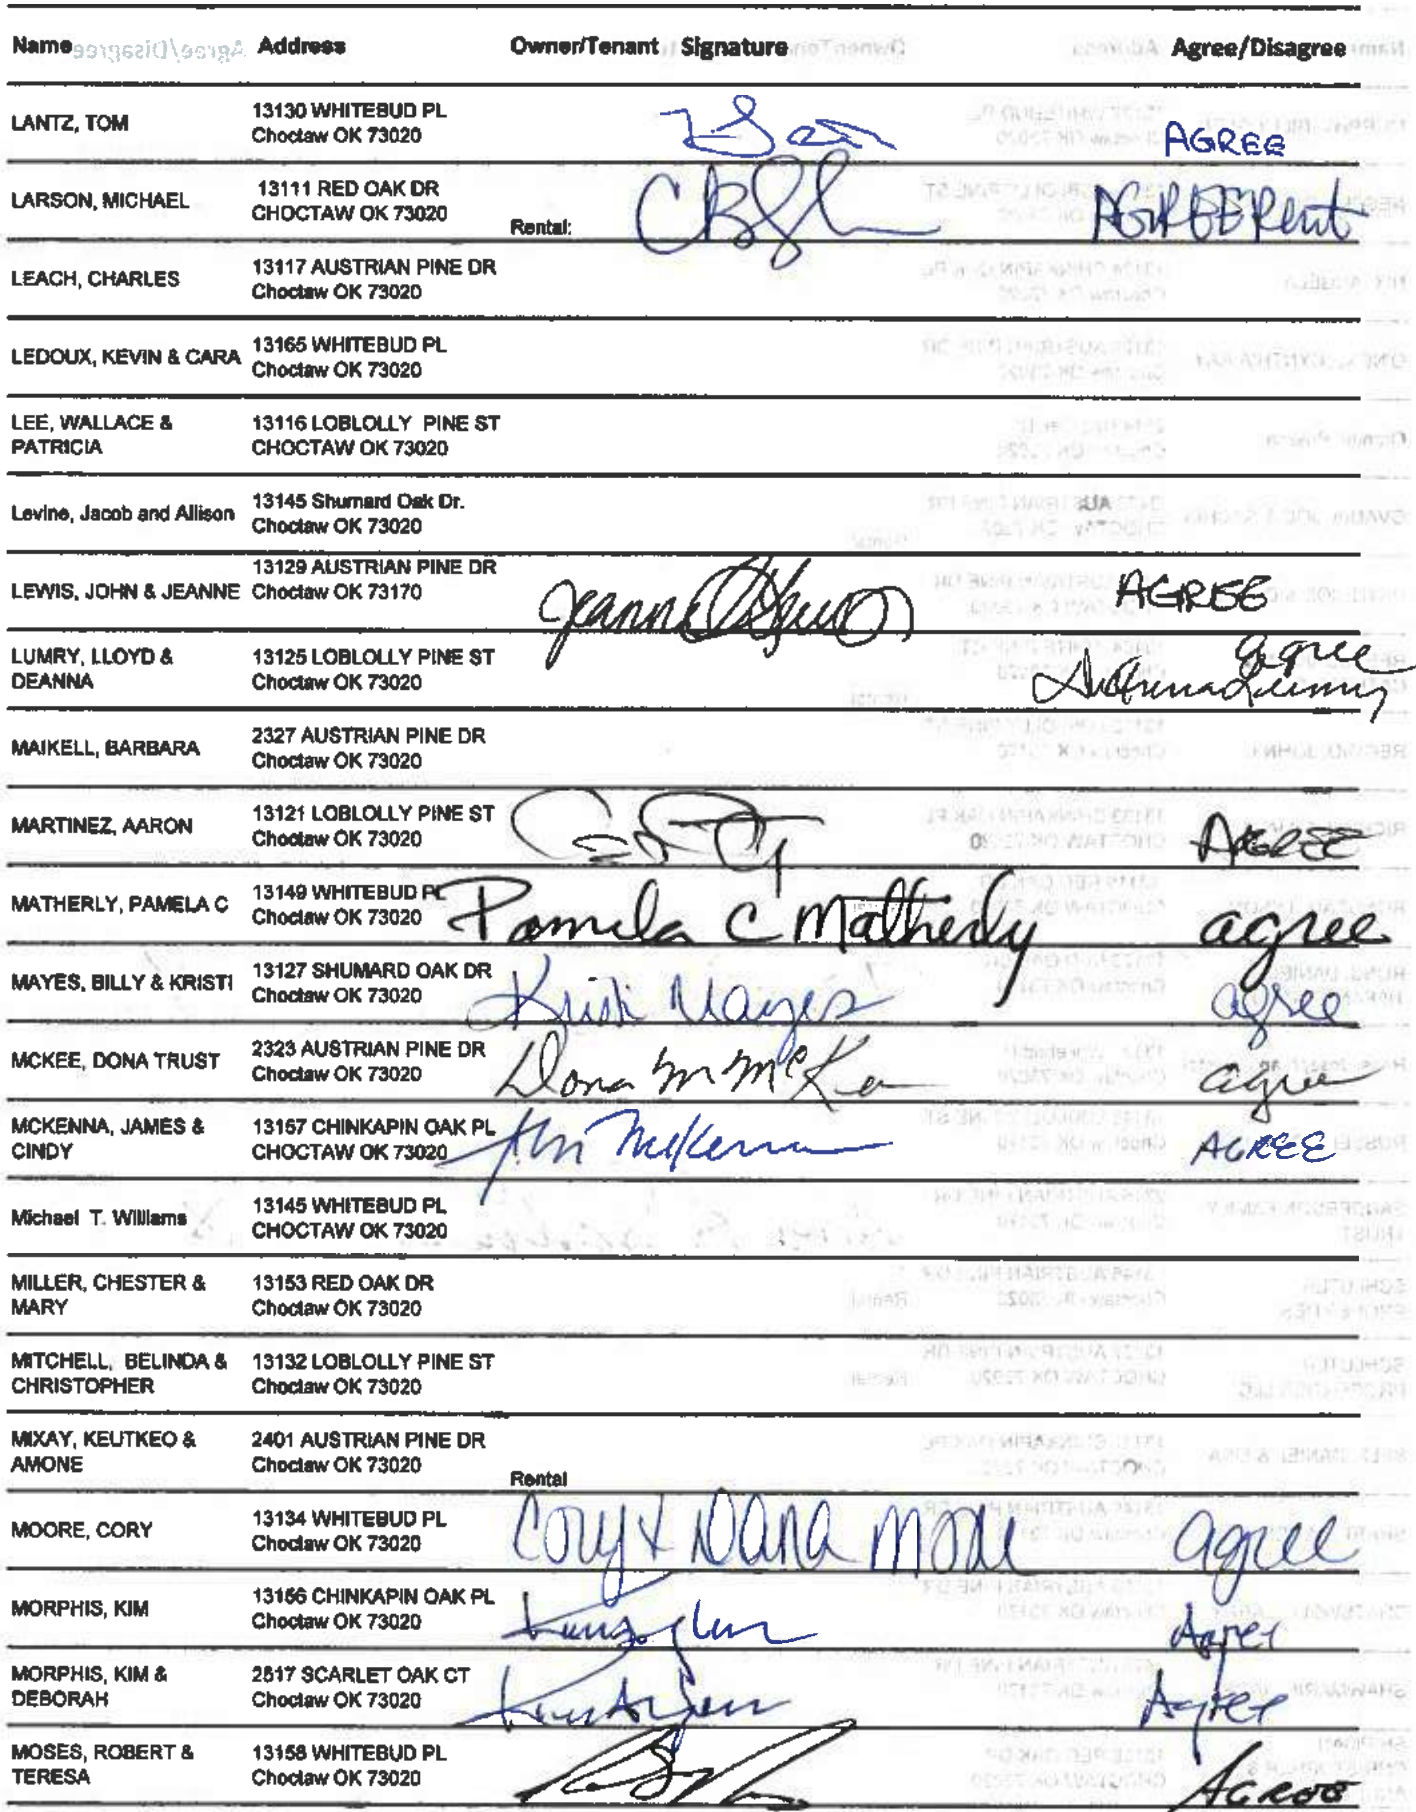 Name Address Owner/Tenant Signature Agree/Disagree
LANTZ, TOM 13130 WHITEBUD PL
Choctaw OK 73020 AGREE
LARSON, MICHAEL 13111 RED OAK DR
CHOCTAW OK 73020 Rental: AGREE Rent
LEACH, CHARLES 13117 AUSTRIAN PINE DR
Choctaw OK 73020
LEDOUX, KEVIN & CARA 13165 WHITEBUD PL
Choctaw OK 73020
LEE, WALLACE & 13116 LOBLOLLY PINE ST
PATRICIA CHOCTAW OK 73020
Levine, Jacob and Allison 13145 Shumard Oak Dr.
Choctaw OK 73020
LEWIS, JOHN & JEANNE 13129 AUSTRIAN PINE DR
Choctaw OK 73170 Jeanne Lewis AGREE
LUMRY, LLOYD & 13125 LOBLOLLY PINE ST agree
DEANNA Choctaw OK 73020 DeAnna Lumry
MAIKELL, BARBARA 2327 AUSTRIAN PINE DR
Choctaw OK 73020
MARTINEZ, AARON 13121 LOBLOLLY PINE ST
Choctaw OK 73020 AGREE
MATHERLY, PAMELA C 13149 WHITEBUD PL
Choctaw OK 73020 Pamela C Matherly agree
MAYES, BILLY & KRISTI 13127 SHUMARD OAK DR
Choctaw OK 73020 Kristi Mayes agree
MCKEE, DONA TRUST 2323 AUSTRIAN PINE DR
Choctaw OK 73020 Dona M McKee agree
MCKENNA, JAMES & 13157 CHINKAPIN OAK PL
CINDY CHOCTAW OK 73020 Jim McKenna AGREE
Michael T. Williams 13145 WHITEBUD PL
CHOCTAW OK 73020
MILLER, CHESTER & 13153 RED OAK DR
MARY Choctaw OK 73020
MITCHELL, BELINDA & 13132 LOBLOLLY PINE ST
CHRISTOPHER Choctaw OK 73020
MIXAY, KEUTKEO & 2401 AUSTRIAN PINE DR
AMONE Choctaw OK 73020 Rental
MOORE, CORY 13134 WHITEBUD PL
Choctaw OK 73020 Cory & Dana Moore agree
MORPHIS, KIM 13156 CHINKAPIN OAK PL
Choctaw OK 73020 Agree
MORPHIS, KIM & 2517 SCARLET OAK CT
DEBORAH Choctaw OK 73020 Agree
MOSES, ROBERT & 13158 WHITEBUD PL
TERESA Choctaw OK 73020 AGREE